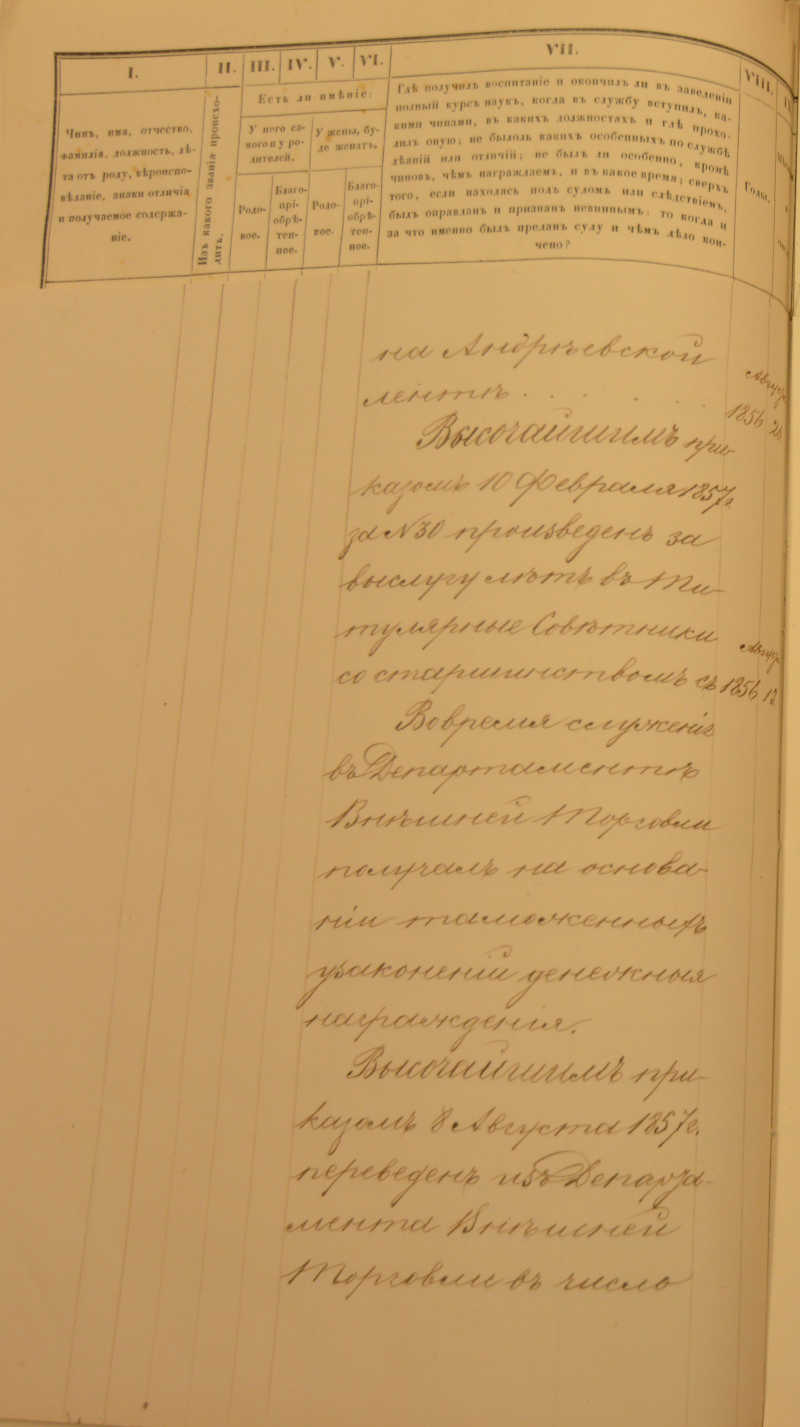 I.
II.
III.
IV.
V.
VI.
VII.
VIII.
Чинъ, имя, отчество,
фамилія, должность, лѣ-
та отъ роду, вѣроиспо-
вѣданіе, знаки отличія
и получаемое содержа-
ніе.
Изъ какого званія происхо-
дитъ.
Есть ли имѣніе:
У него са-
мого и у ро-
дителей.
У жены, бу-
де женатъ.
Родо-
вое.
Благо-
прі-
обрѣ-
тен-
ное.
Родо-
вое.
Благо-
прі-
обрѣ-
тен-
ное.
Гдѣ получилъ воспитаніе и окончилъ ли въ заведеніи
полный курсъ наукъ, когда въ службу вступилъ, ка-
кими чинами, въ какихъ должностяхъ и гдѣ прохо-
дилъ оную; не было ль какихъ особенныхъ по службѣ
дѣяній или отличій; не былъ ли особенно, кромѣ
чиновъ, чѣмъ награждаемъ, и въ какое время; сверхъ
того, если находясь подъ судомъ или слѣдствіемъ,
былъ оправданъ и признанъ невиннымъ; то когда и
за что именно былъ преданъ суду и чѣмъ дѣло кон-
чено?
Годы.
на Андреевской
лентѣ . . . . .
1856 26
Высочайшимъ при-
казомъ 10 Февраля 1857г.
за №30 произведенъ за
выслугу лѣтъ въ Ти-
тулярные Совѣтники
со старшинствомъ съ 1856 12
Вовремя служенія
въ Департаментѣ
Внѣшней Торговли
получалъ на основа-
ніи таможенныхъ
узаконеній денежныя
награжденія.
Высочайшимъ при-
казомъ 8 Августа 1857г.
переведенъ изъ Департа-
мента Внѣшней
Торговли въ число